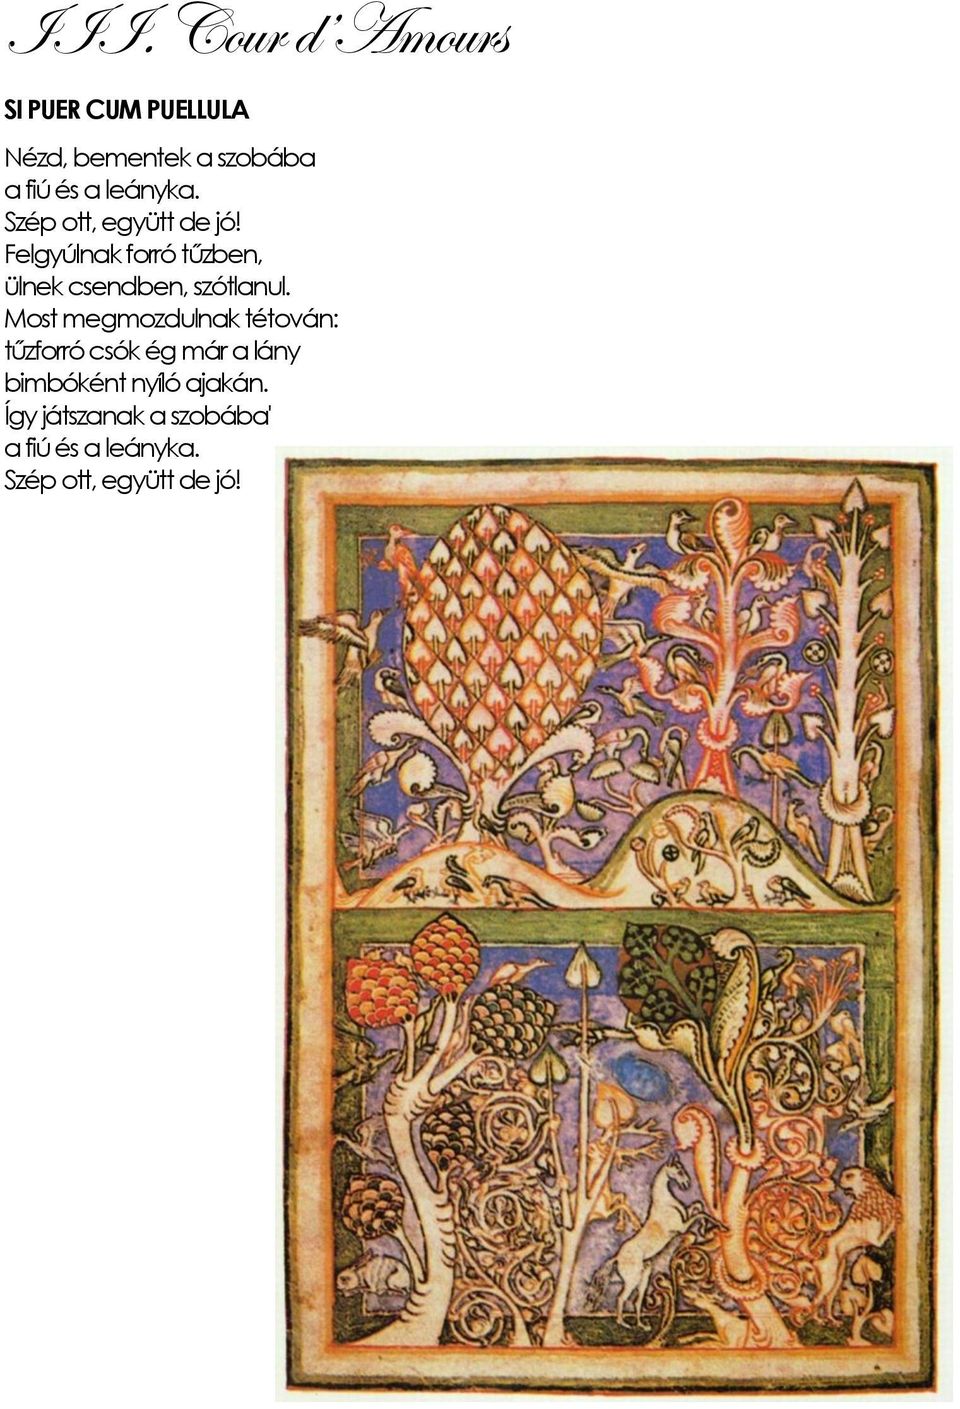 III. Cour d'Amours
SI PUER CUM PUELLULA
Nézd, bementek a szobába
a fiú és a leányka.
Szép ott, együtt de jó!
Felgyúlnak forró tűzben,
ülnek csendben, szótlanul.
Most megmozdulnak tétován:
tűzforró csók ég már a lány
bimbóként nyíló ajakán.
Így játszanak a szobába'
a fiú és a leányka.
Szép ott, együtt de jó!